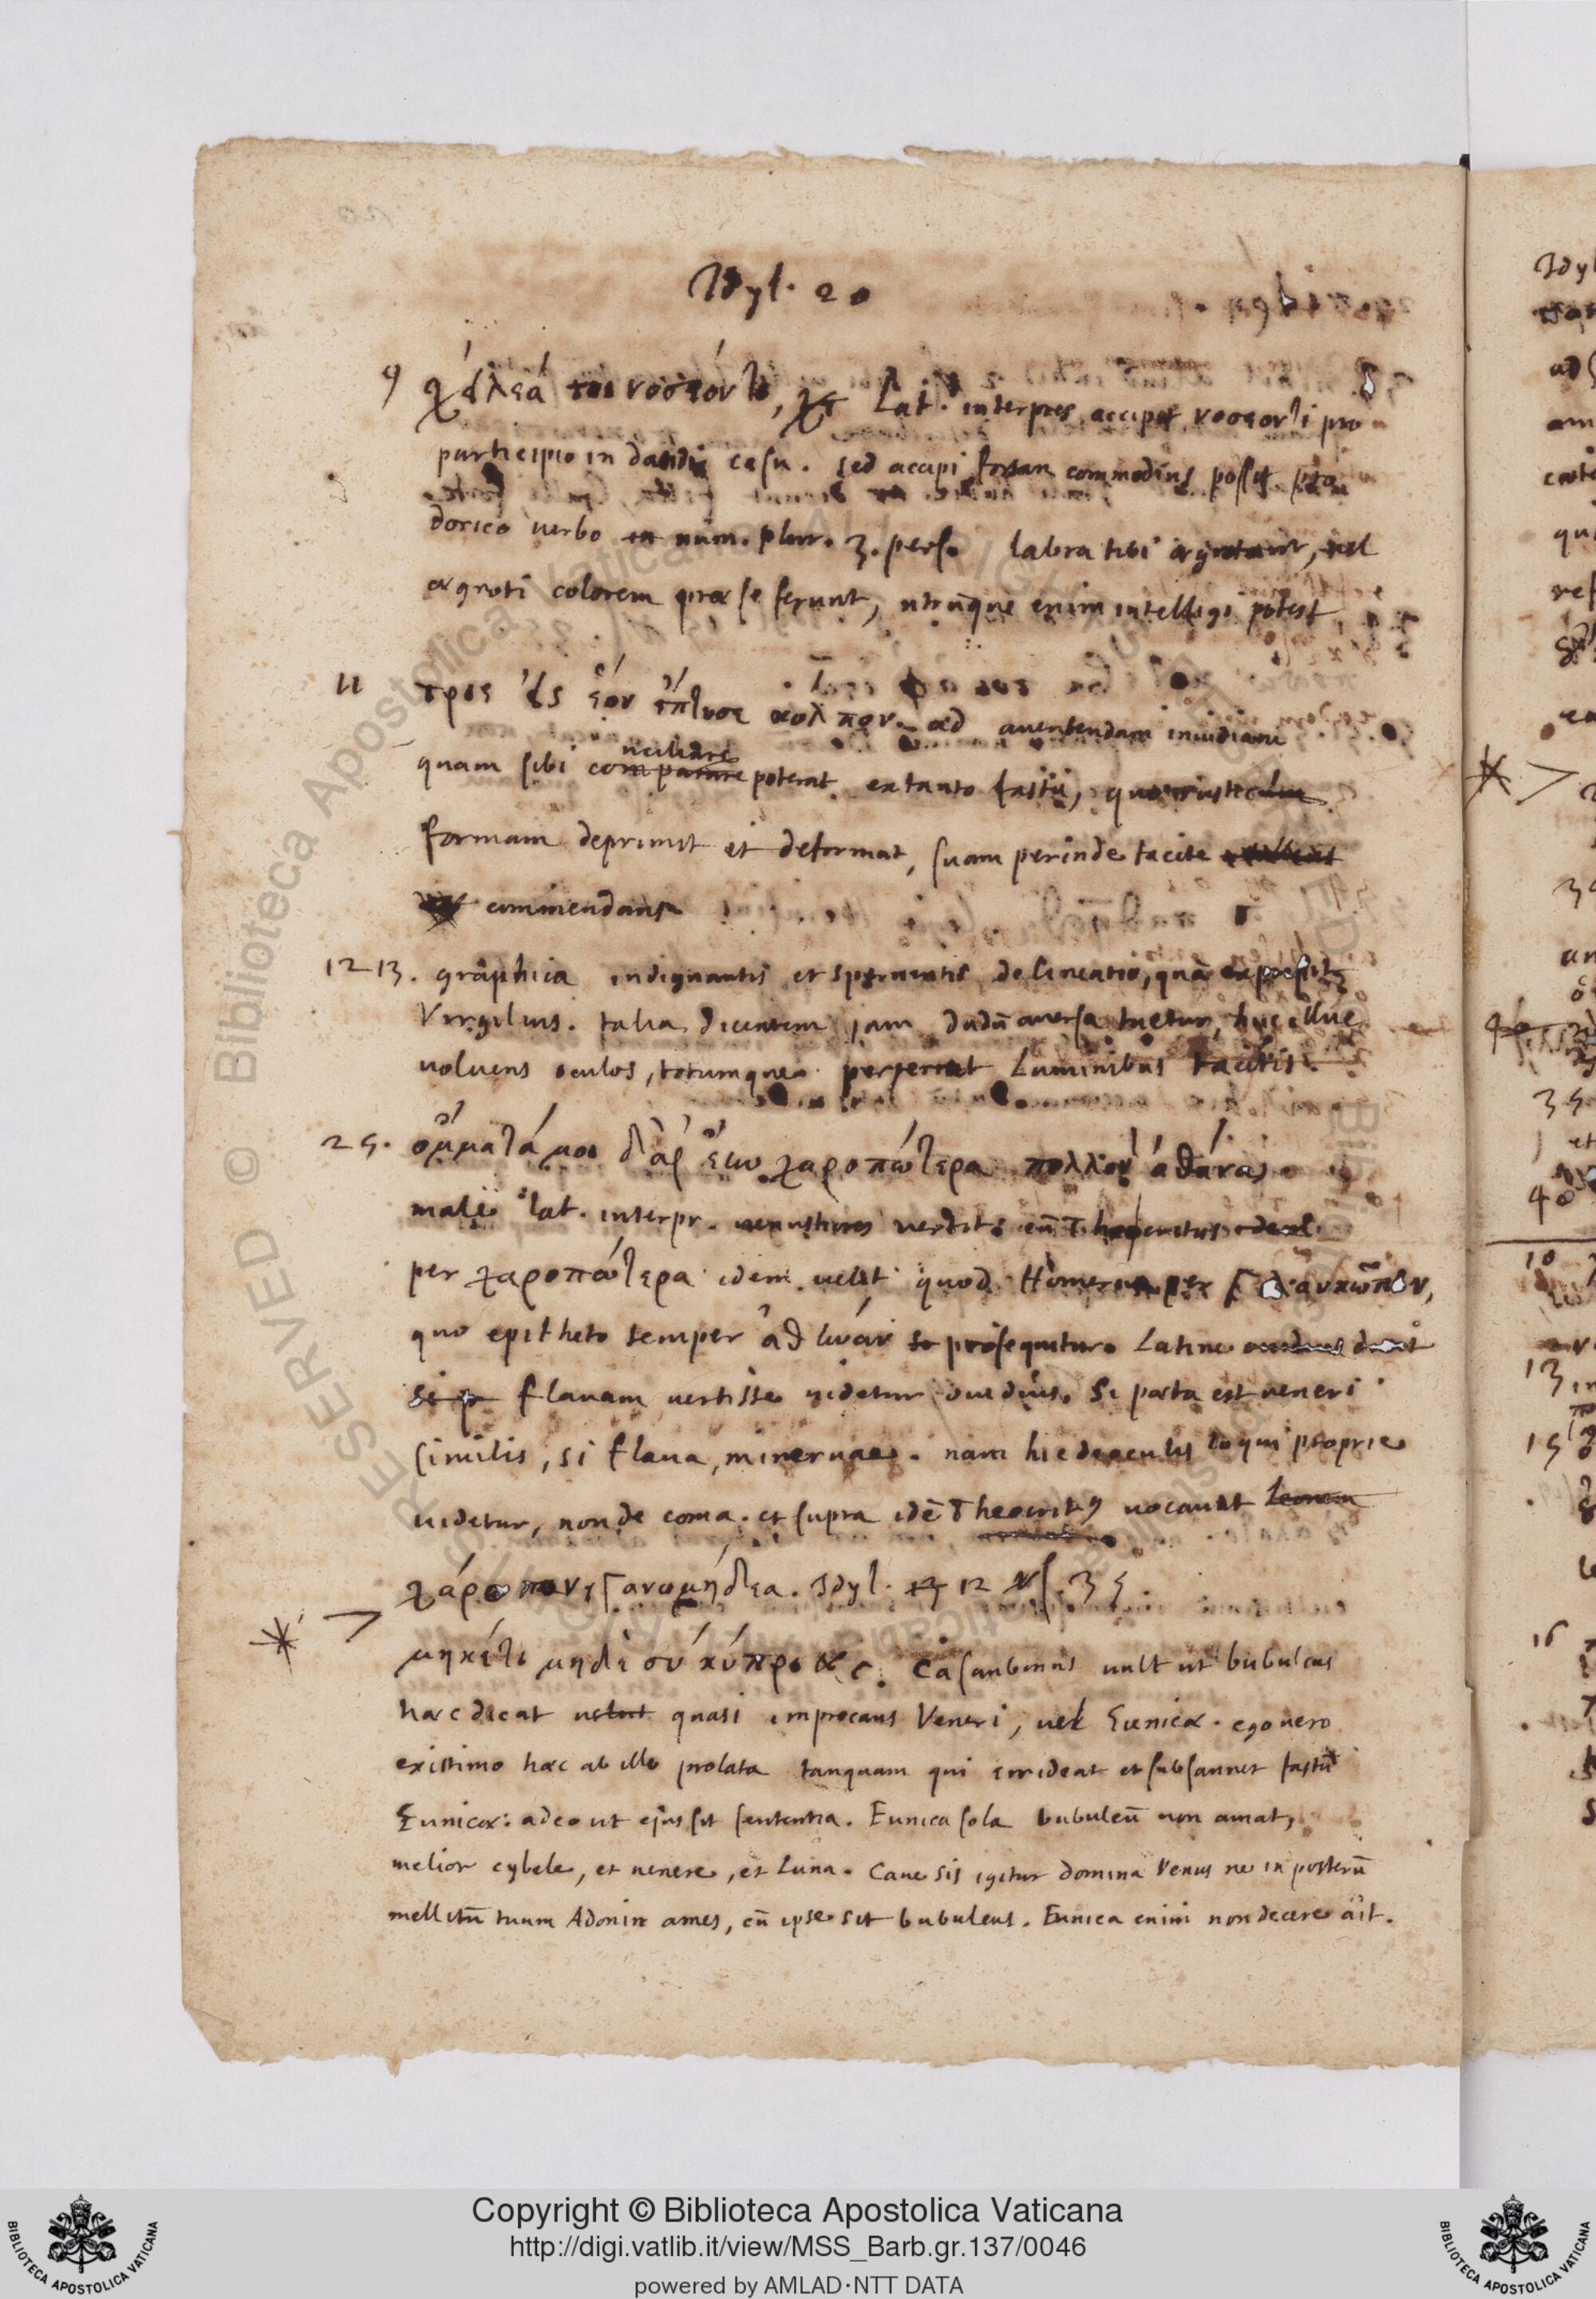 Idyl. 20
9 χείλεά τοι νοσέοντι, Lat. interpres accipit νοσεοντι pro
participio in dandi casu. sed accipi forsan commodius posset pro
dorico verbo in num. plur. 3. pers. labra tibi ægrotant, vel
ægroti colorem præ se ferunt, utrunque enim intelligi potest
11 τρις εἰς ἑὸν ἔπτυσε κολπον. ad avertendam invidiam
quam sibi comparare nciliare poterat ex tanto fastu, quo rusticelum
formam deprimit et deformat, suam perinde tacite
commendans
12 13. graphica indignantis et spernentis delineatio, quā expressit
Virgilius. talia dicentem jam dudū aversa tuetur, huc illuc
volvens oculos, totumque pererrat Luminibus tacitis.
25. ὄμματά μοι δ' ἀρ ἔην χαροπώτερα πολλὸν ἀθάνας
male lat. interpr. venustiores vertit. cū Theocritus
per χαροπώτερα idem velit quod Homerus per Γλαυκῶπιν,
quo epitheto semper ἀθηνάν prosequitur. Latine
si p flavam vertisse videtur ovidius. Si pæta est veneri
similis, si flava, minervae. nam hic de oculis loqui proprie
videtur, non de coma. et supra idē Theocritus vocavit Leonem
χάροπον, Γανυμήδεα. Idyl. 12 vs. 35.
μηκέτι μηδὲ σύ κύπρι &c. Casaubonus vult ut bubulcus
hæc dicat velut quasi imprecans Veneri, vel Eunicæ. ego vero
existimo hæc ab illo prolata tanquam qui irrideat et subsannet fastū
Eunicæ: adeo ut ejus sit sententia. Eunica sola bubulcū non amat,
melior cybele, et venere, et Luna. Cave sis igitur domina Venus ne in posterū
mellitū tuum Adonin ames, cū ipse sit bubulcus. Eunica enim non decere ait.
Copyright © Biblioteca Apostolica Vaticana
http://digi.vatlib.it/view/MSS_Barb.gr.137/0046
powered by AMLAD·NTT DATA